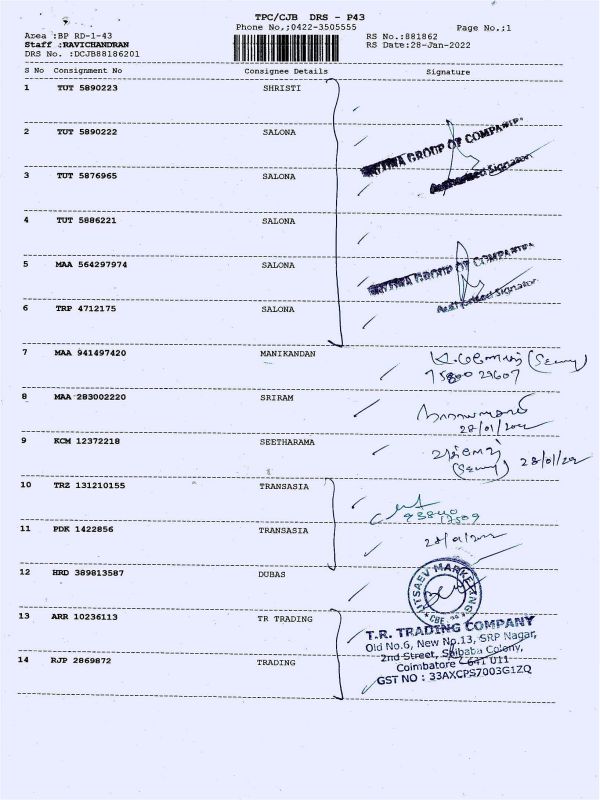 TPC/CJB DRS - P43
Phone No,;0422-3505555
Page No.;1
Area :BP RD-1-43
RS No.:881862
Staff :RAVICHANDRAN
RS Date:28-Jan-2022
DRS No. :DCJB88186201
S No Consignment No Consignee Details Signature
1 TUT 5890223 SHRISTI
2 TUT 5890222 SALONA
GROUP OF COMPANIE
Authorised Signator
3 TUT 5876965 SALONA
4 TUT 5886221 SALONA
GROUP OF COMPANIE
5 MAA 564297974 SALONA
Authorised Signator
6 TRP 4712175 SALONA
7 MAA 941497420 MANIKANDAN
8 MAA 283002220 SRIRAM
9 KCM 12372218 SEETHARAMA
28/01/22
10 TRZ 131210155 TRANSASIA
11 PDK 1422856 TRANSASIA
12 HRD 389813587 DUBAS
UTSAEV MARKETING
CBE
13 ARR 10236113 TR TRADING
T.R. TRADING COMPANY
Old No.6, New No.13, SRP Nagar,
2nd Street, Saibaba Colony,
14 RJP 2869872 TRADING
Coimbatore - 641 011
GST NO : 33AXCPS7003G1ZQ